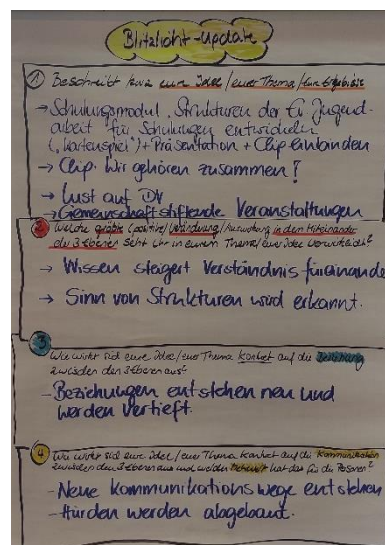 Blitzlicht-update
① Beschreibt kurz eure Idee/euer Thema/eure Ergebnisse
→ Schulungsmodul „Strukturen der Ev. Jugend-
arbeit für Schulungen entwickeln
(„Kartenspiel“)+Präsentation+Clip einbinden
→ Clip. Wir gehören zusammen!
→ Lust auf DV
→ Gemeinschaftstiftende Veranstaltungen
2 Welche größte (positive) Veränderung/Auswirkung in dem Miteinander
der 3 Ebenen seht ihr in eurem Thema/eurer Idee verwirklicht?
→ Wissen steigert Verständnis füreinande
→ Sinn von Strukturen wird erkannt.
3
Wie wirkt sich eure Idee/euer Thema konkret auf die Beziehung
zwischen den 3 Ebenen aus?
- Beziehungen entstehen neu und
werden vertieft.
4 Wie wirkt sich eure Idee/euer Thema konkret auf die Kommunikation
zwischen den 3 Ebenen aus und welchen Mehrwert hat das für die Personen?
- Neue Kommunikationswege entstehen
- Hürden werden abgebaut.